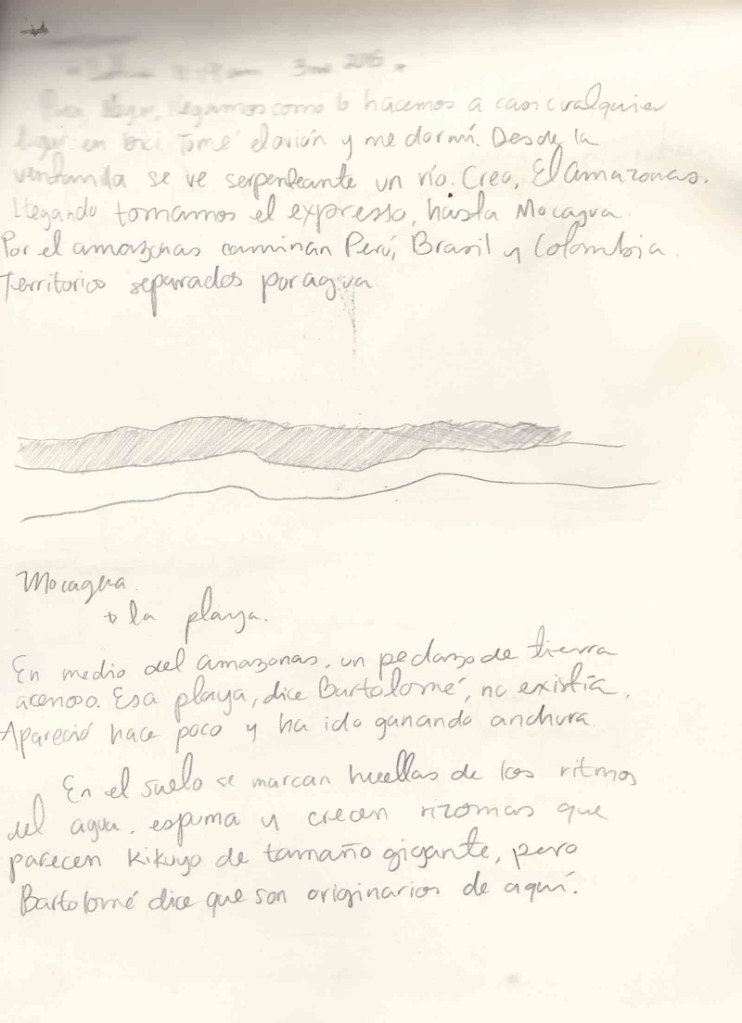 2015.
llegamos como lo hacemos a casi cualquier
lugar en bici. Tomé el avión y me dormí. Desde la
ventanilla se ve serpenteante un río. Creo, El Amazonas.
Llegando tomamos el expresso, hasta Mocagua.
Por el amazonas caminan Perú, Brasil y Colombia.
Territorios separados por agua
Mocagua.
la playa.
En medio del amazonas, un pedazo de tierra
arenoso. Esa playa, dice Bartolomé, no existía.
Apareció hace poco y ha ido ganando anchura
En el suelo se marcan huellas de los ritmos
del agua, espuma y crecen rizomas que
parecen kikuyo de tamaño gigante, pero
Bartolomé dice que son originarios de aquí.